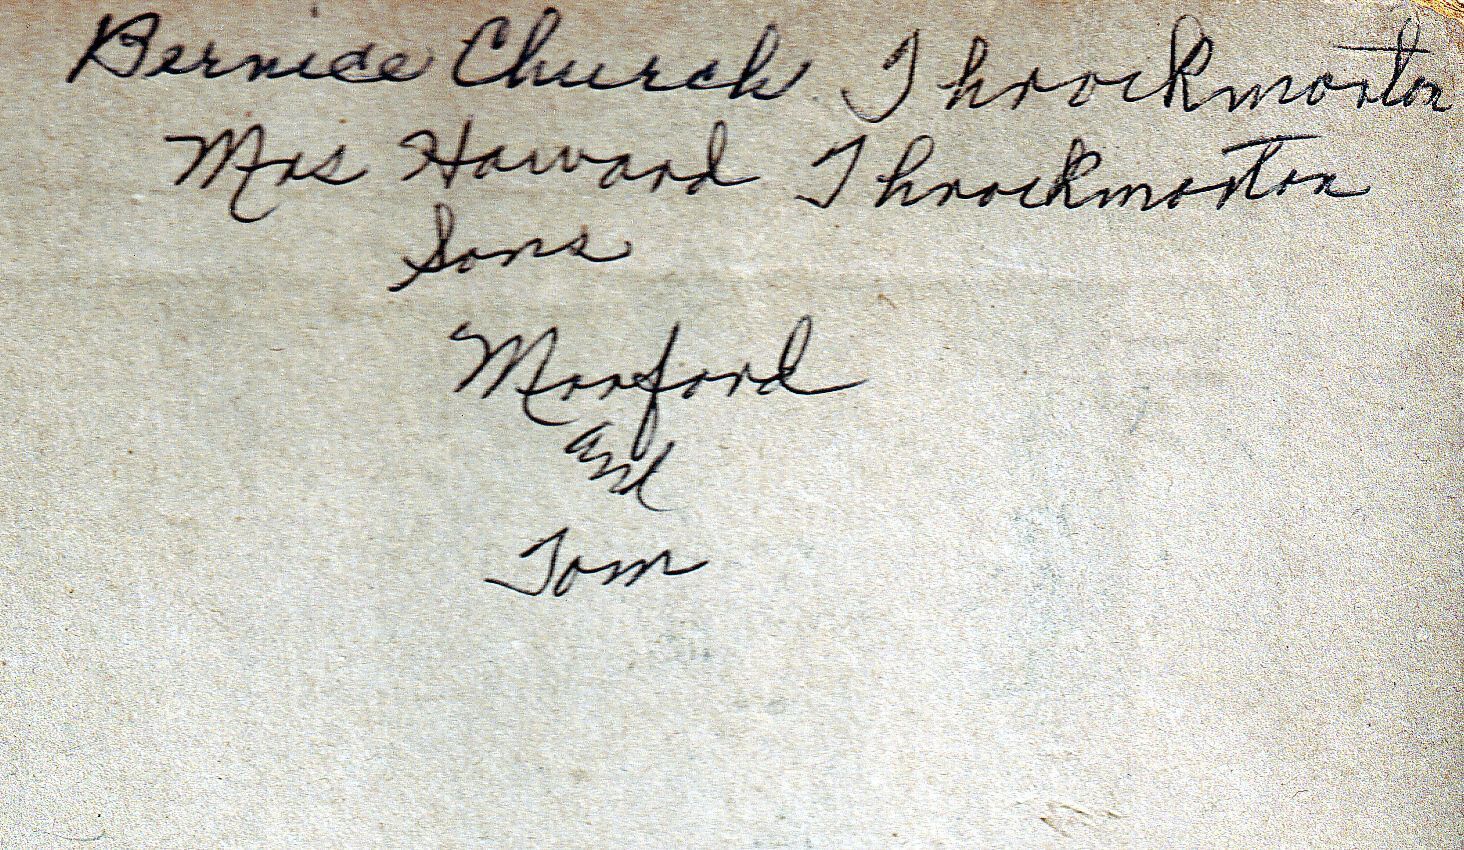 Bernice Church Throckmorton
Mrs Howard Throckmorton
Sons
Morford
and
Tom